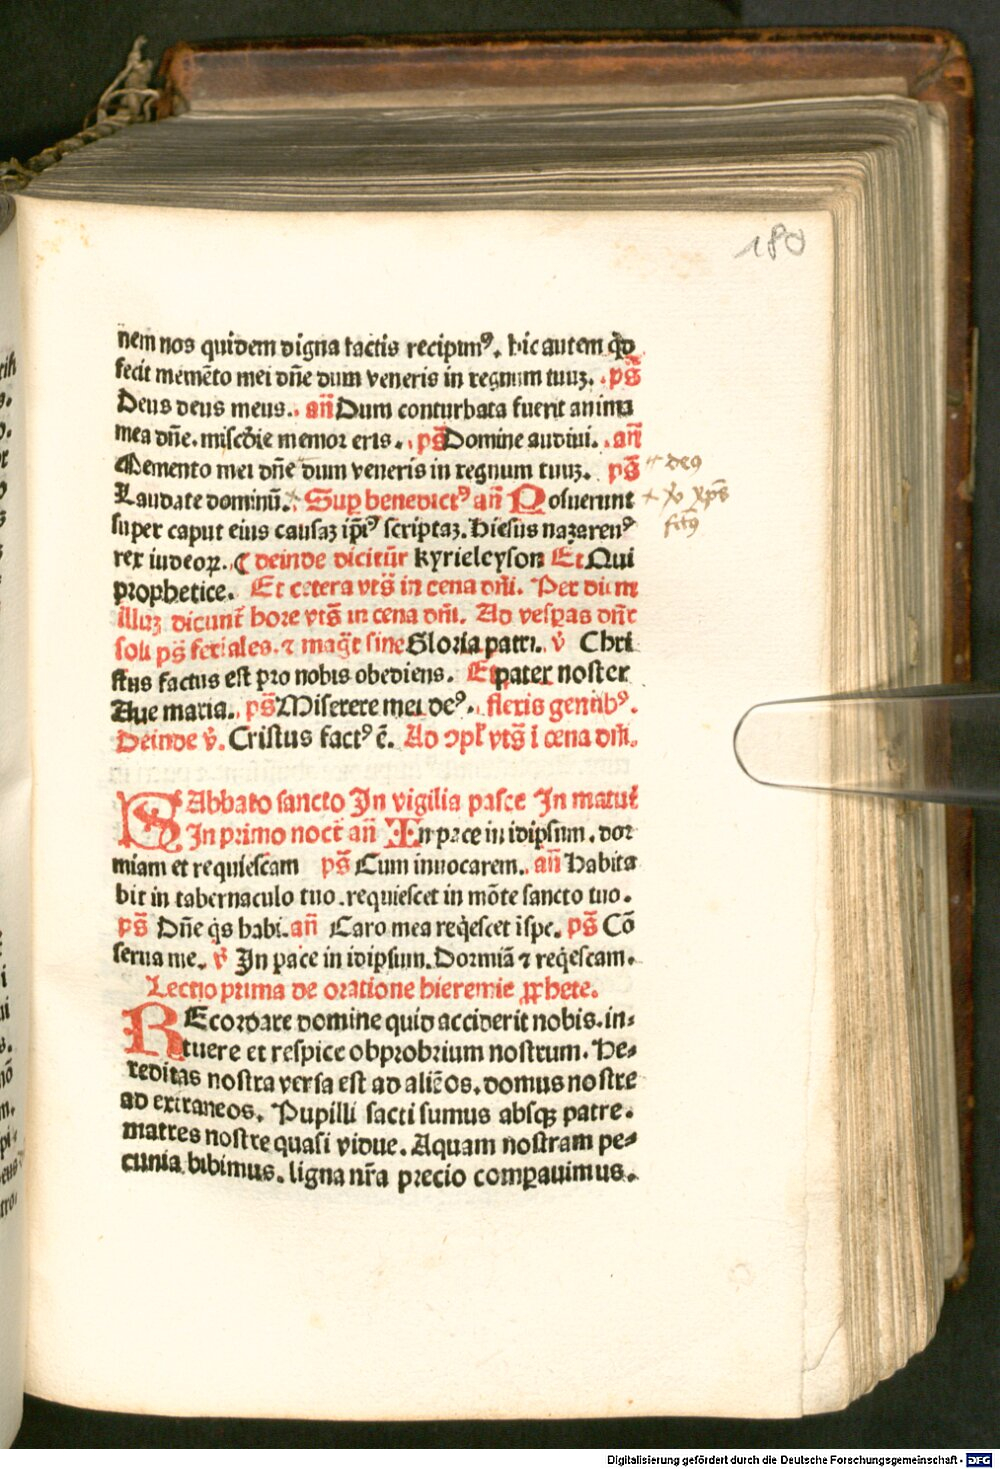 180
nem nos quidem digna factis recipimꝰ. hic autem qd̄
fecit memēto mei dn̄e dum veneris in regnum tuuꝫ. ps̄
Deus deus meus. an̄ Dum conturbata fuerit anima
mea dn̄e. miscd̄ie memor eris. ps̄ Domine audiui. an̄
Memento mei dn̄e dum veneris in regnum tuuꝫ. ps̄
Laudate dominū. Suꝑ benedictꝰ an̄ Posuerunt
super caput eius causaꝫ ip̄iꝰ scriptaꝫ. Hiesus nazarenꝰ
rex iudeoꝝ. ¶ deinde dicitūr kyrieleyson Et Qui
prophetice. Et cetera vts̄ in cena dn̄i. Per dium
illuꝫ dicunt̄ hore vts̄ in cena dn̄i. Ad vesꝑas dn̄r
soli ps̄ feriales. ⁊ maḡt sine Gloria patri. v̄ Chri
stus factus est pro nobis obediens. Et pater noster
Aue maria. ps̄ Miserere mei deꝰ. flexis genibꝰ.
Deinde v̄. Cristus factꝰ ē. Ad ↄpl̄ vts̄ ī cena dn̄i.
SAbbato sancto In vigilia pasce In matut̄
In primo noct̄ an̄ In pace in idipsum. dor
miam et requiescam ps̄ Cum inuocarem. an̄ Habita
bit in tabernaculo tuo. requiescet in mōte sancto tuo.
ps̄ Dn̄e q̇s habi. an̄ Caro mea req̇escet ī spe. ps̄ Cō
serua me. v̄ In pace in idipsum. Dormiā ⁊ req̇escam.
Lectio prima de oratione hieremie ꝓphete.
REcordare domine quid acciderit nobis. in⸗
tuere et respice obprobrium nostrum. He⸗
reditas nostra versa est ad aliēos. domus nostre
ad extraneos. Pupilli facti sumus absqꝫ patre.
matres nostre quasi vidue. Aquam nostram pe⸗
cunia bibimus. ligna nr̄a precio comꝑauimus.
deꝰ
xp̄s
Digitalisierung gefördert durch die Deutsche Forschungsgemeinschaft - DFG